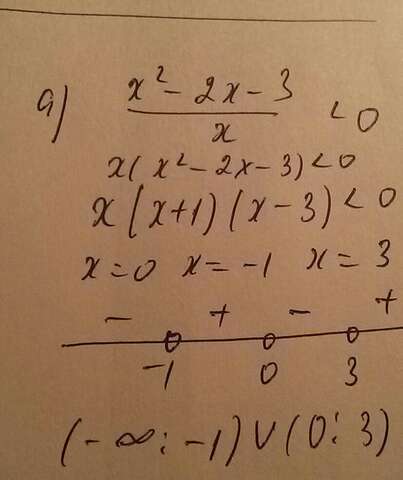 a) x² - 2x - 3 / x < 0
x(x² - 2x - 3) < 0
x(x+1)(x-3) < 0
x = 0 x = -1 x = 3
- + - +
-1 0 3
(-∞; -1) ∪ (0; 3)